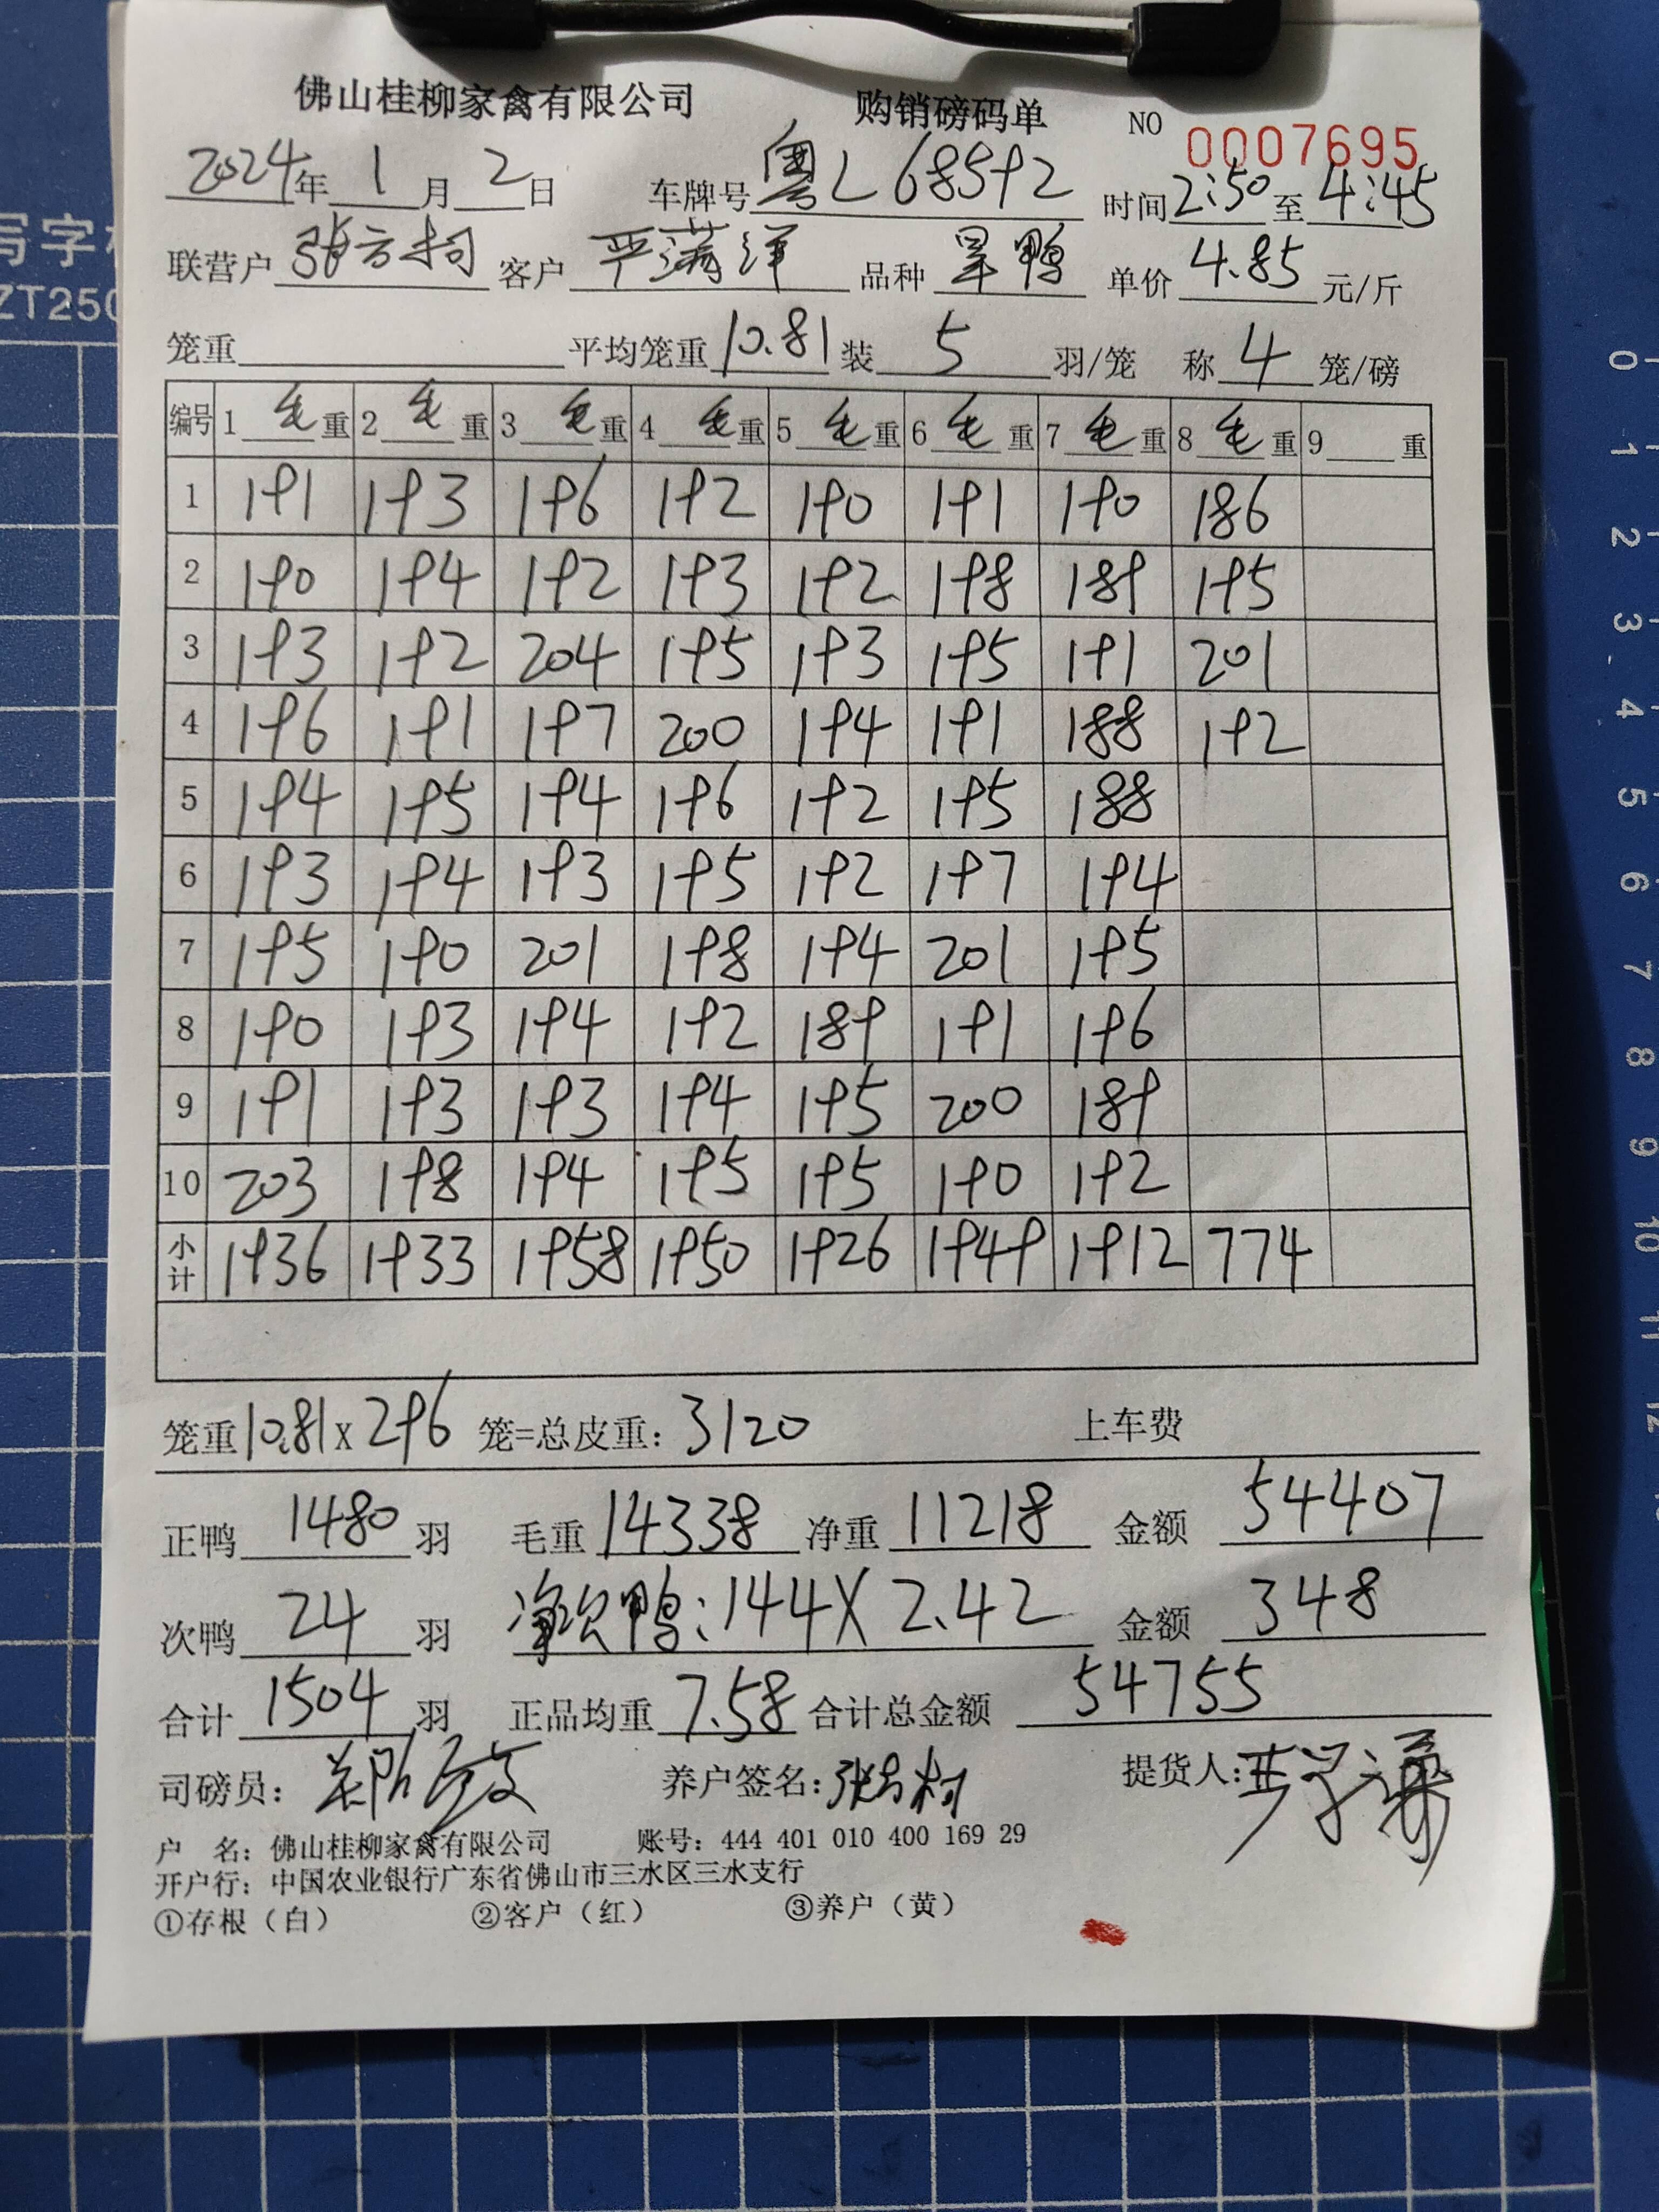 佛山桂柳家禽有限公司 购销磅码单 NO 0007695
2024年 1 月 2 日 车牌号 粤L68592 时间 2:50 至 4:45
联营户 客户 严满洋 品种 旱鸭 单价 4.85 元/斤
笼重 平均笼重 10.81 装 5 羽/笼 称 4 笼/磅
编号 1 毛 重 2 毛 重 3 毛 重 4 毛 重 5 毛 重 6 毛 重 7 毛 重 8 毛 重 9 重
1 191 193 196 192 190 191 190 186
2 190 194 192 193 192 198 189 195
3 193 192 204 195 193 195 191 201
4 196 191 197 200 194 191 188 192
5 194 195 194 196 192 195 188
6 193 194 193 195 192 197 194
7 195 190 201 198 194 201 195
8 190 193 194 192 189 191 196
9 191 193 193 194 195 200 189
10 203 198 194 195 195 190 192
小计 1936 1933 1958 1950 1926 1949 1912 774
笼重 10.81 x 296 笼=总皮重: 3120 上车费
正鸭 1480 羽 毛重 14338 净重 11218 金额 54407
次鸭 24 羽 净次鸭: 144 X 2.42 金额 348
合计 1504 羽 正品均重 7.58 合计总金额 54755
司磅员: 养户签名: 提货人:
户 名: 佛山桂柳家禽有限公司 账号: 444 401 010 400 169 29
开户行: 中国农业银行广东省佛山市三水区三水支行
①存根（白） ②客户（红） ③养户（黄）
写字
ZT250
0
1
2
3
4
5
6
7
8
9
10
11
12